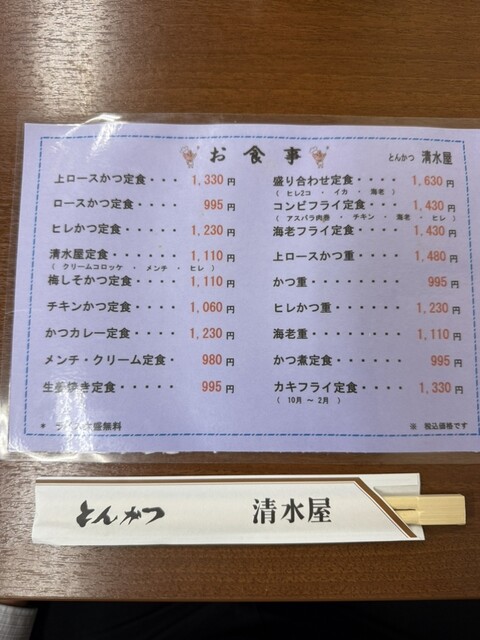 お食事
とんかつ 清水屋
上ロースかつ定食・・・ 1,330円
ロースかつ定食・・・・ 995円
ヒレかつ定食・・・・・ 1,230円
清水屋定食・・・・・・ 1,110円
( クリームコロッケ ・ メンチ ・ ヒレ )
梅しそかつ定食・・・・ 1,110円
チキンかつ定食・・・・ 1,060円
かつカレー定食・・・・ 1,230円
メンチ・クリーム定食・ 980円
生姜焼き定食・・・・・ 995円
* 大盛無料
盛り合わせ定食・・・・ 1,630円
( ヒレ2コ ・ イカ ・ 海老 )
コンビフライ定食・・・ 1,430円
( アスパラ肉巻 ・ チキン ・ 海老 ・ ヒレ )
海老フライ定食・・・・ 1,430円
上ロースかつ重・・・・ 1,480円
かつ重・・・・・・・・ 995円
ヒレかつ重・・・・・・ 1,230円
海老重・・・・・・・・ 1,110円
かつ煮定食・・・・・・ 995円
カキフライ定食・・・・ 1,330円
( 10月 ～ 2月 )
※ 税込価格です
とんかつ 清水屋